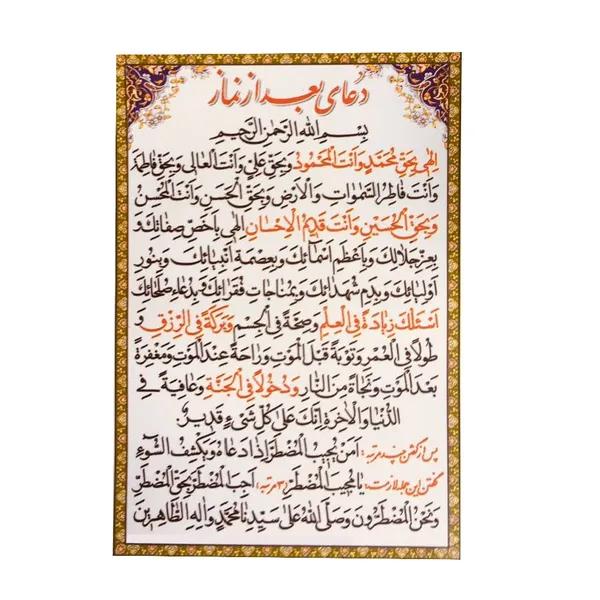 دعای بعد از نماز
بِسْمِ اللهِ الرَّحْمٰنِ الرَّحيمِ
اِلٰهی بِحَقِّ مُحَمَّدٍ وَاَنْتَ الْمَحْمُودُ وَبِحَقِّ عَلِيٍّ وَاَنْتَ الْعالی وَبِحَقِّ فاطِمَةَ
وَاَنْتَ فاطِرُ السَّمٰواتِ وَالْاَرْضِ وَبِحَقِّ الْحَسَنِ وَاَنْتَ الْمُحْسِنُ
وَبِحَقِّ الْحُسَيْنِ وَاَنْتَ قَديمُ الْاِحْسٰانِ اِلٰهی بِاَخَصِّ صِفاتِكَ وَ
بِعِزِّ جَلالِكَ وَبِاَعْظَمِ اَسْمٰائِكَ وَبِعِصْمَةِ اَنْبِيٰائِكَ وَبِنُورِ
اَوْلِيٰائِكَ وَبِدَمِ شُهَدٰائِكَ وَبِمُنٰاجٰاتِ فُقَرٰائِكَ وَبِدُعٰاءِ صُلَحٰائِكَ
اَسْئَلُكَ زِيٰادَةً فِی الْعِلْمِ وَصِحَّةً فِی الْجِسْمِ وَبَرَكَةً فِی الرِّزْقِ وَ
طُولاً فِی الْعُمْرِ وَتَوْبَةً قَبْلَ الْمَوْتِ وَرٰاحَةً عِنْدَ الْمَوْتِ وَمَغْفِرَةً
بَعْدَ الْمَوْتِ وَنَجٰاةً مِنَ النّٰارِ وَدُخُولاً فِی الْجَنَّةِ وَعٰافِيَةً فِی
الدُّنْيٰا وَالْاٰخِرَةِ اِنَّكَ عَلیٰ كُلِّ شَیْءٍ قَديرٌ.
پس از گفتن چند مرتبه: اَمَّنْ يُجيبُ الْمُضْطَرَّ اِذٰا دَعٰاهُ وَيَكْشِفُ السُّوٓءَ
گفتن این جمله لازمست: يٰا مُجيبَ الْمُضْطَرِّ (۳ مرتبه) اَجِبِ الْمُضْطَرَّ بِحَقِّ الْمُضْطَرِّ
وَنَحْنُ الْمُضْطَرُّونَ وَصَلَّی اللهُ عَلیٰ سَيِّدِنٰا مُحَمَّدٍ وَاٰلِهِ الطّٰاهِرينَ